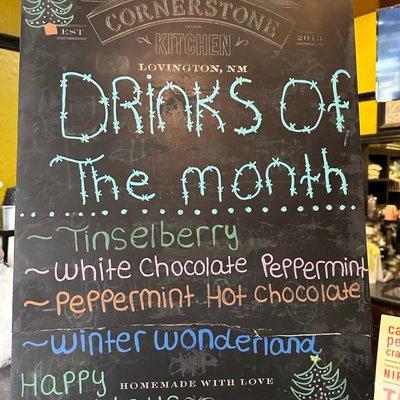 CORNERSTONE
EST 2013
KITCHEN
LOVINGTON, NM
DRINKS OF
THE MONTH
~ Tinselberry
~ White Chocolate Peppermint
~ Peppermint Hot Chocolate
~ Winter Wonderland
Happy
HOMEMADE WITH LOVE